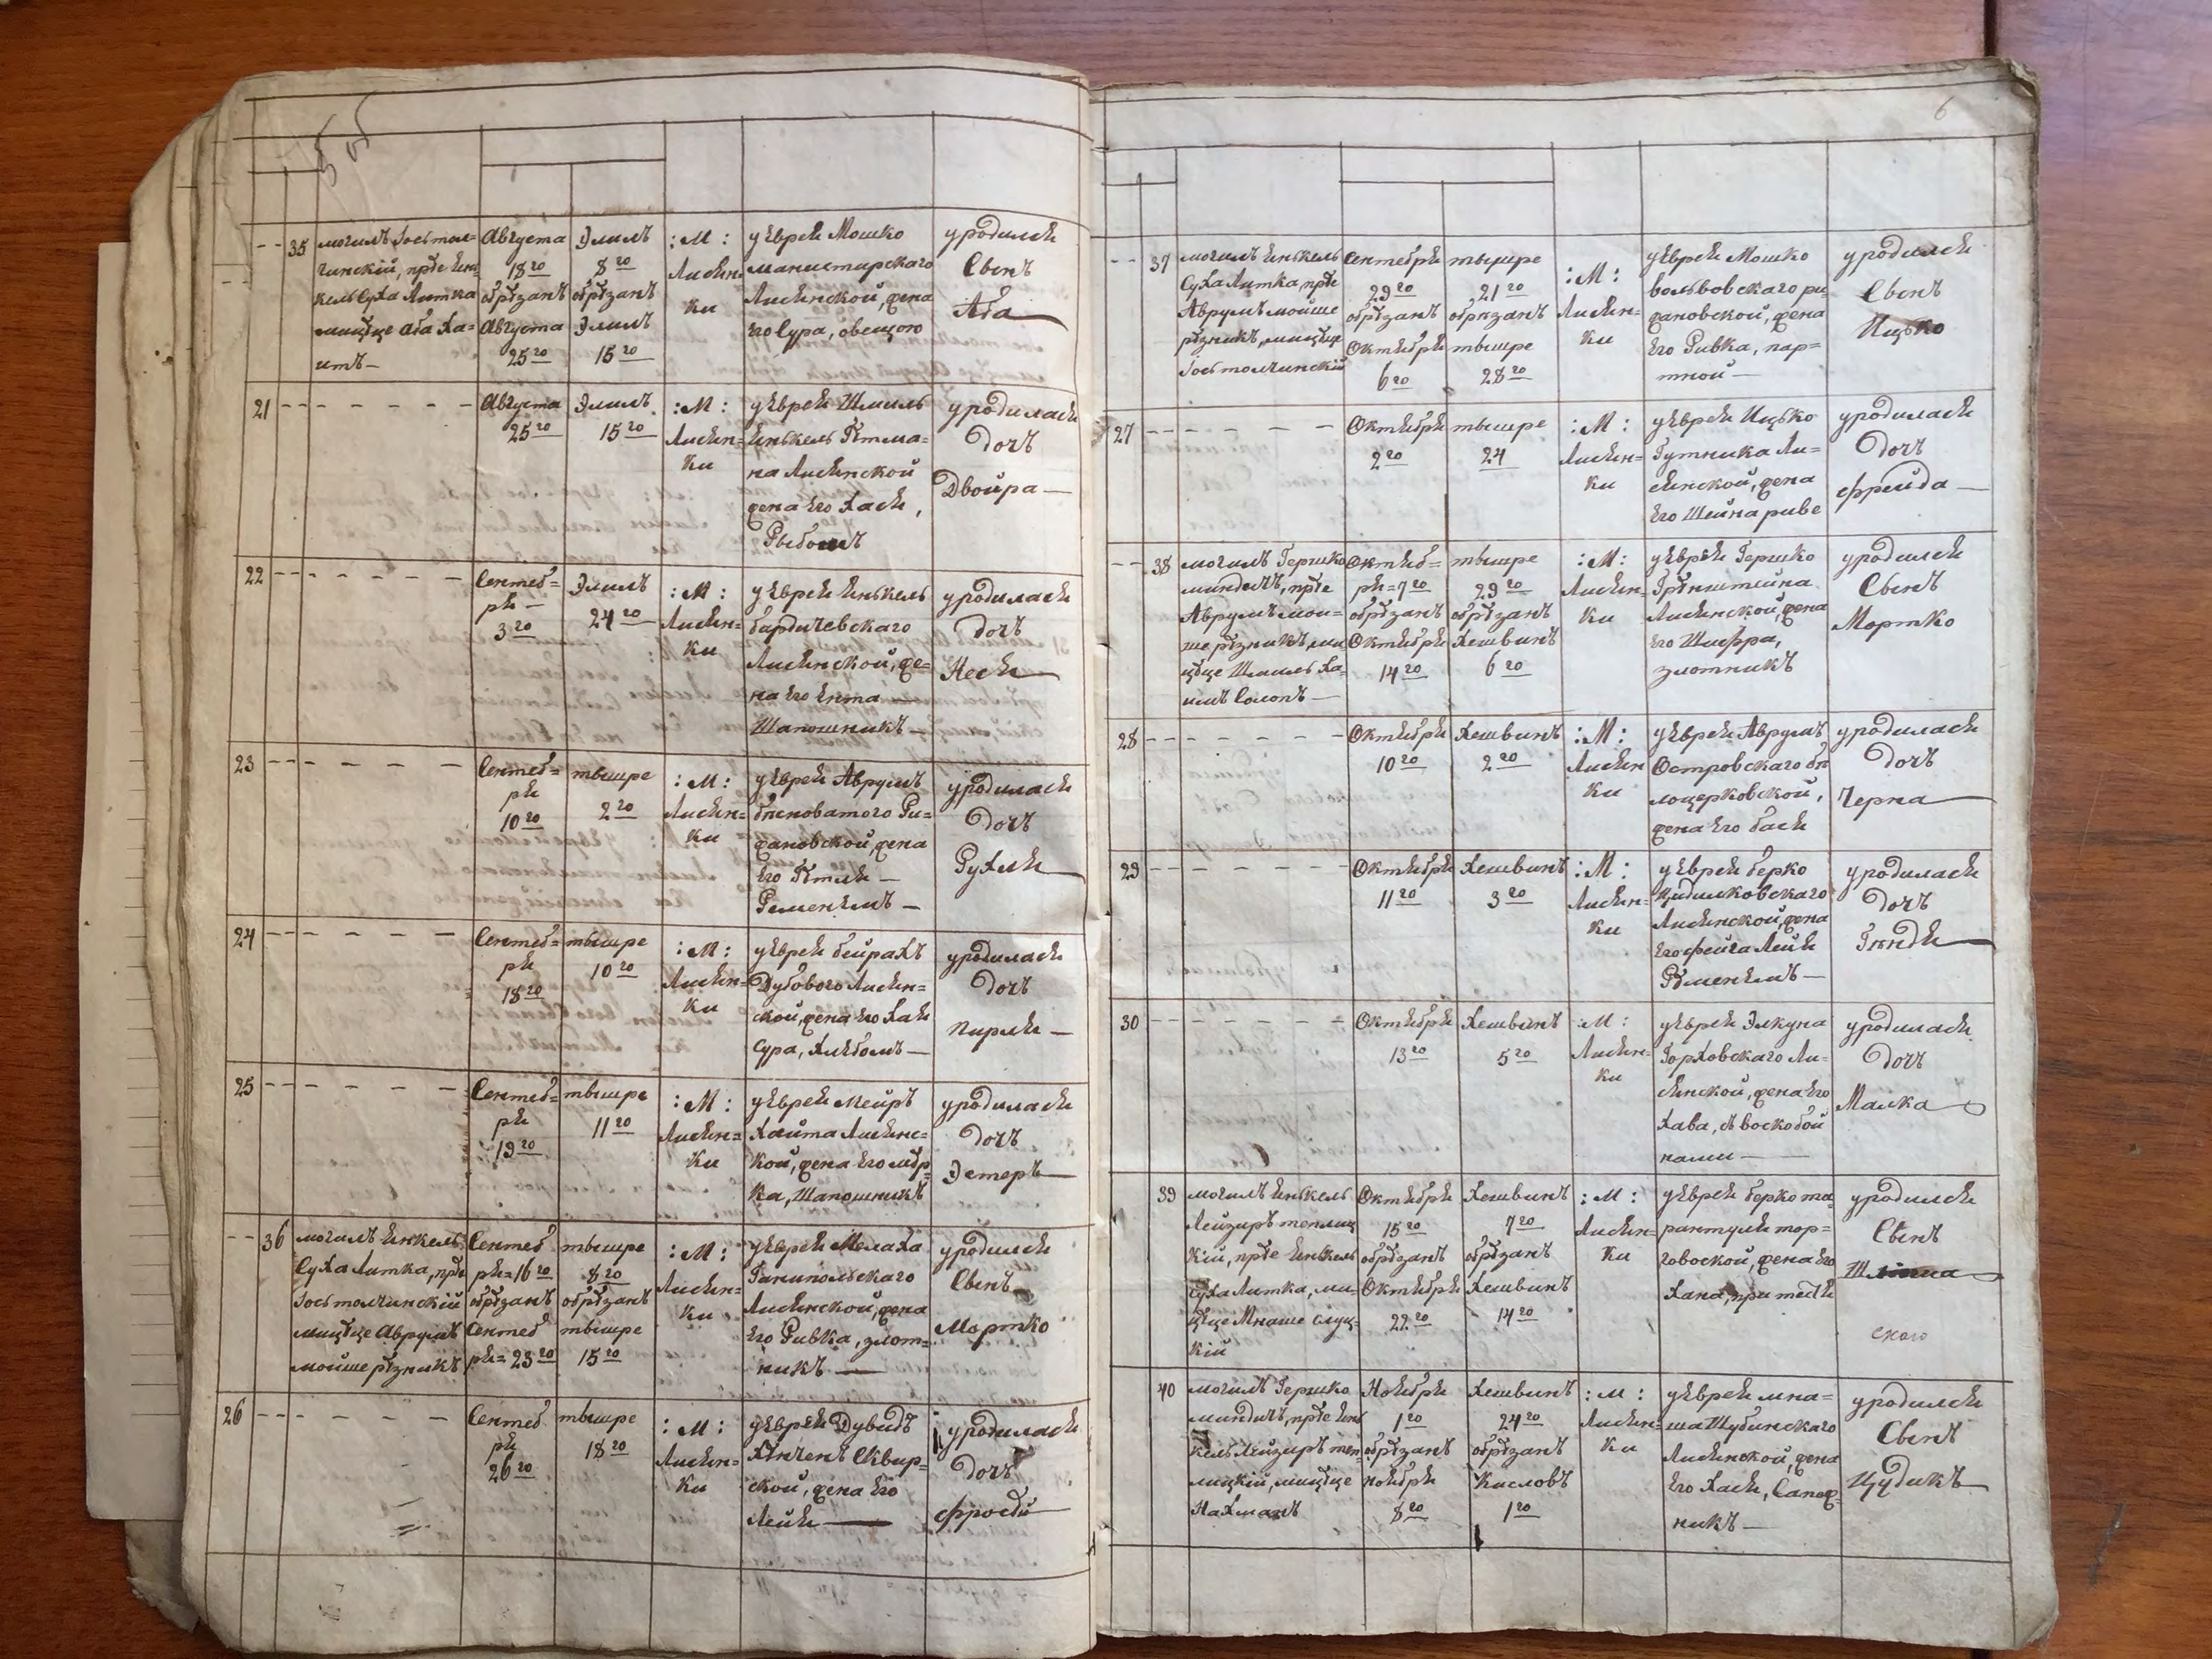 35
могилъ Госьтол=
чинскій, прѣе Ень
кель Суха Литка
мицѣце Аба Ха=
имъ —
Августа
18го
обрѣзанъ
Августа
25го
Элилъ
8го
обрѣзанъ
Элилъ
15го
: М :
Лисян
ки
у Еврея Мошко
манистирскаго
Лисянской, жена
Его Сура,
уродился
Сынъ
Аба
21
Августа
25го
Элилъ
15го
: М :
Лисян=
ки
у Еврея Шмиль
Енькель
на Лисянской
жена Его Хася,
уродилась
дочь
Двойра —
22
Сентеб=
ря —
3го
Элилъ
24го
: М :
Лисян=
ки
у Еврея Енькель
бардичевскаго
Лисянской, же=
на Его Ента
Шапошникъ —
уродилась
дочь
Неся
23
Сентеб=
ря
10го
тышре
2го
: М :
Лисян=
ки
у Еврея Аврумъ
Ри=
жановской, жена
Его
Ременемъ —
уродилась
дочь
Рухля
24
Сентеб=
ря
18го
тышре
10го
: М :
Лисян=
ки
у Еврея бейрахъ
Дубового Лисян=
ской, жена Его Хая
Сура, Хлебомъ —
уродилась
дочь
Пирля —
25
Сентеб=
ря
19го
тышре
11го
: М :
Лисян=
ки
у Еврея Мейръ
Хаита Лисянс=
кой, жена Его
ка, Шапошникъ
уродилась
дочь
Эстеръ
36
могилъ Енкель
Суха Литка, прѣе
Госьтолчинскій
мицѣце Аврумъ
мойше рѣзникъ
Сентеб
ря = 16го
обрѣзанъ
Сентеб
ря = 23го
тышре
8го
обрѣзанъ
тышре
15го
: М :
Лисян=
ки
у Еврея Мелаха
Ганипольскаго
Лисянской, жена
Его Ривка, злот=
никъ —
уродился
Сынъ
Мортко
26
Сентеб
ря
26го
тышре
18го
: М :
Лисян=
ки
у Еврея Дувидъ
Сквир=
ской, жена Его
Лейя
уродилась
дочь
6
37
могилъ Енькель
Суха Литка, прѣе
Аврумъ мойше
рѣзникъ, мицѣце
Госьтолчинскій
Сентебря
29го
обрѣзанъ
Октября
6го
тышре
21го
обрѣзанъ
тышре
28го
: М :
Лисян=
ки
у Еврея Мошко
вольвовскаго ри=
жановской, жена
Его Ривка, пар=
тной —
уродился
Сынъ
Ицько
27
Октября
2го
тышре
24
: М :
Лисян=
ки
у Еврея Ицько
Гутника Ли=
сянской, жена
Его Шейна риве
уродилась
дочь
фрейда —
38
могилъ Гершко
миндичъ, прѣе
Аврумъ мой=
ше рѣзникъ, ми
цѣце Шмиль Ха=
имъ Солопъ —
Октяб=
ря = 7го
обрѣзанъ
Октября
14го
тышре
29го
обрѣзанъ
Хешвинъ
6го
: М :
Лисян=
ки
у Еврея Гершко
Грѣнштейна
Лисянской, жена
Его Шифра,
злотникъ
уродился
Сынъ
Мортко
28
Октября
10го
Хешвинъ
2го
: М :
Лисян
ки
у Еврея Аврумъ
Островскаго бѣ
лоцерковской,
жена Его бася
уродилась
дочь
Черна
29
Октября
11го
Хешвинъ
3го
: М :
Лисян=
ки
у Еврея берко
Цидилковскаго
Лисянской, жена
Его фейга Лейя
Рѣменемъ —
уродилась
дочь
Гиндя
30
Октября
13го
Хешвинъ
5го
: М :
Лисян=
ки
у Еврея Элкуна
Горховскаго Ли=
сянской, жена Его
Хава, съ воскобой
нами —
уродилась
дочь
Малка
39
могилъ Енькель
Лейзиръ теплиц
кій, прѣе Енькель
Суха Литка, ми=
цѣце Мнаше слуц=
кій
Октября
15го
обрѣзанъ
Октября
22го
Хешвинъ
7го
обрѣзанъ
Хешвинъ
14го
: М :
Лисян=
ки
у Еврея берко та
рантуля тор=
говоской, жена Его
Хана, при тестѣ
уродился
Сынъ
40
могилъ Гершко
миндичъ, прѣе Ень
кель Лейзиръ теп=
лицкій, мицѣце
Нахманъ
Ноября
1го
обрѣзанъ
ноября
8го
Хешвинъ
24го
обрѣзанъ
Кисловъ
1го
: М :
Лисян=
ки
у Еврея мна=
ша Шубинскаго
Лисянской, жена
Его Хася, Сапож=
никъ —
уродился
Сынъ
Цудикъ